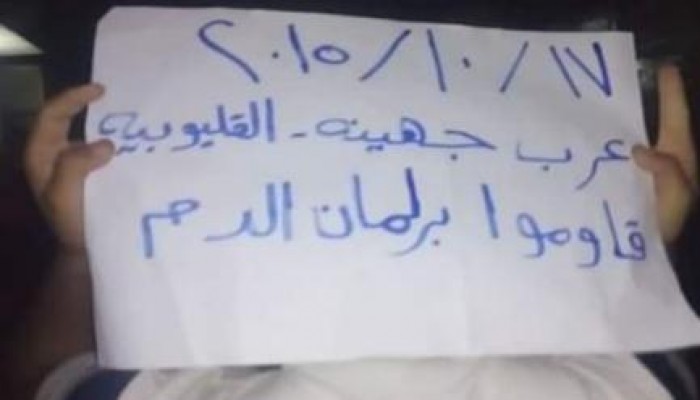 ٢٠١٥/١٠/١٧
عرب جهينه - القليوبيه
قاوموا برلمان الدم